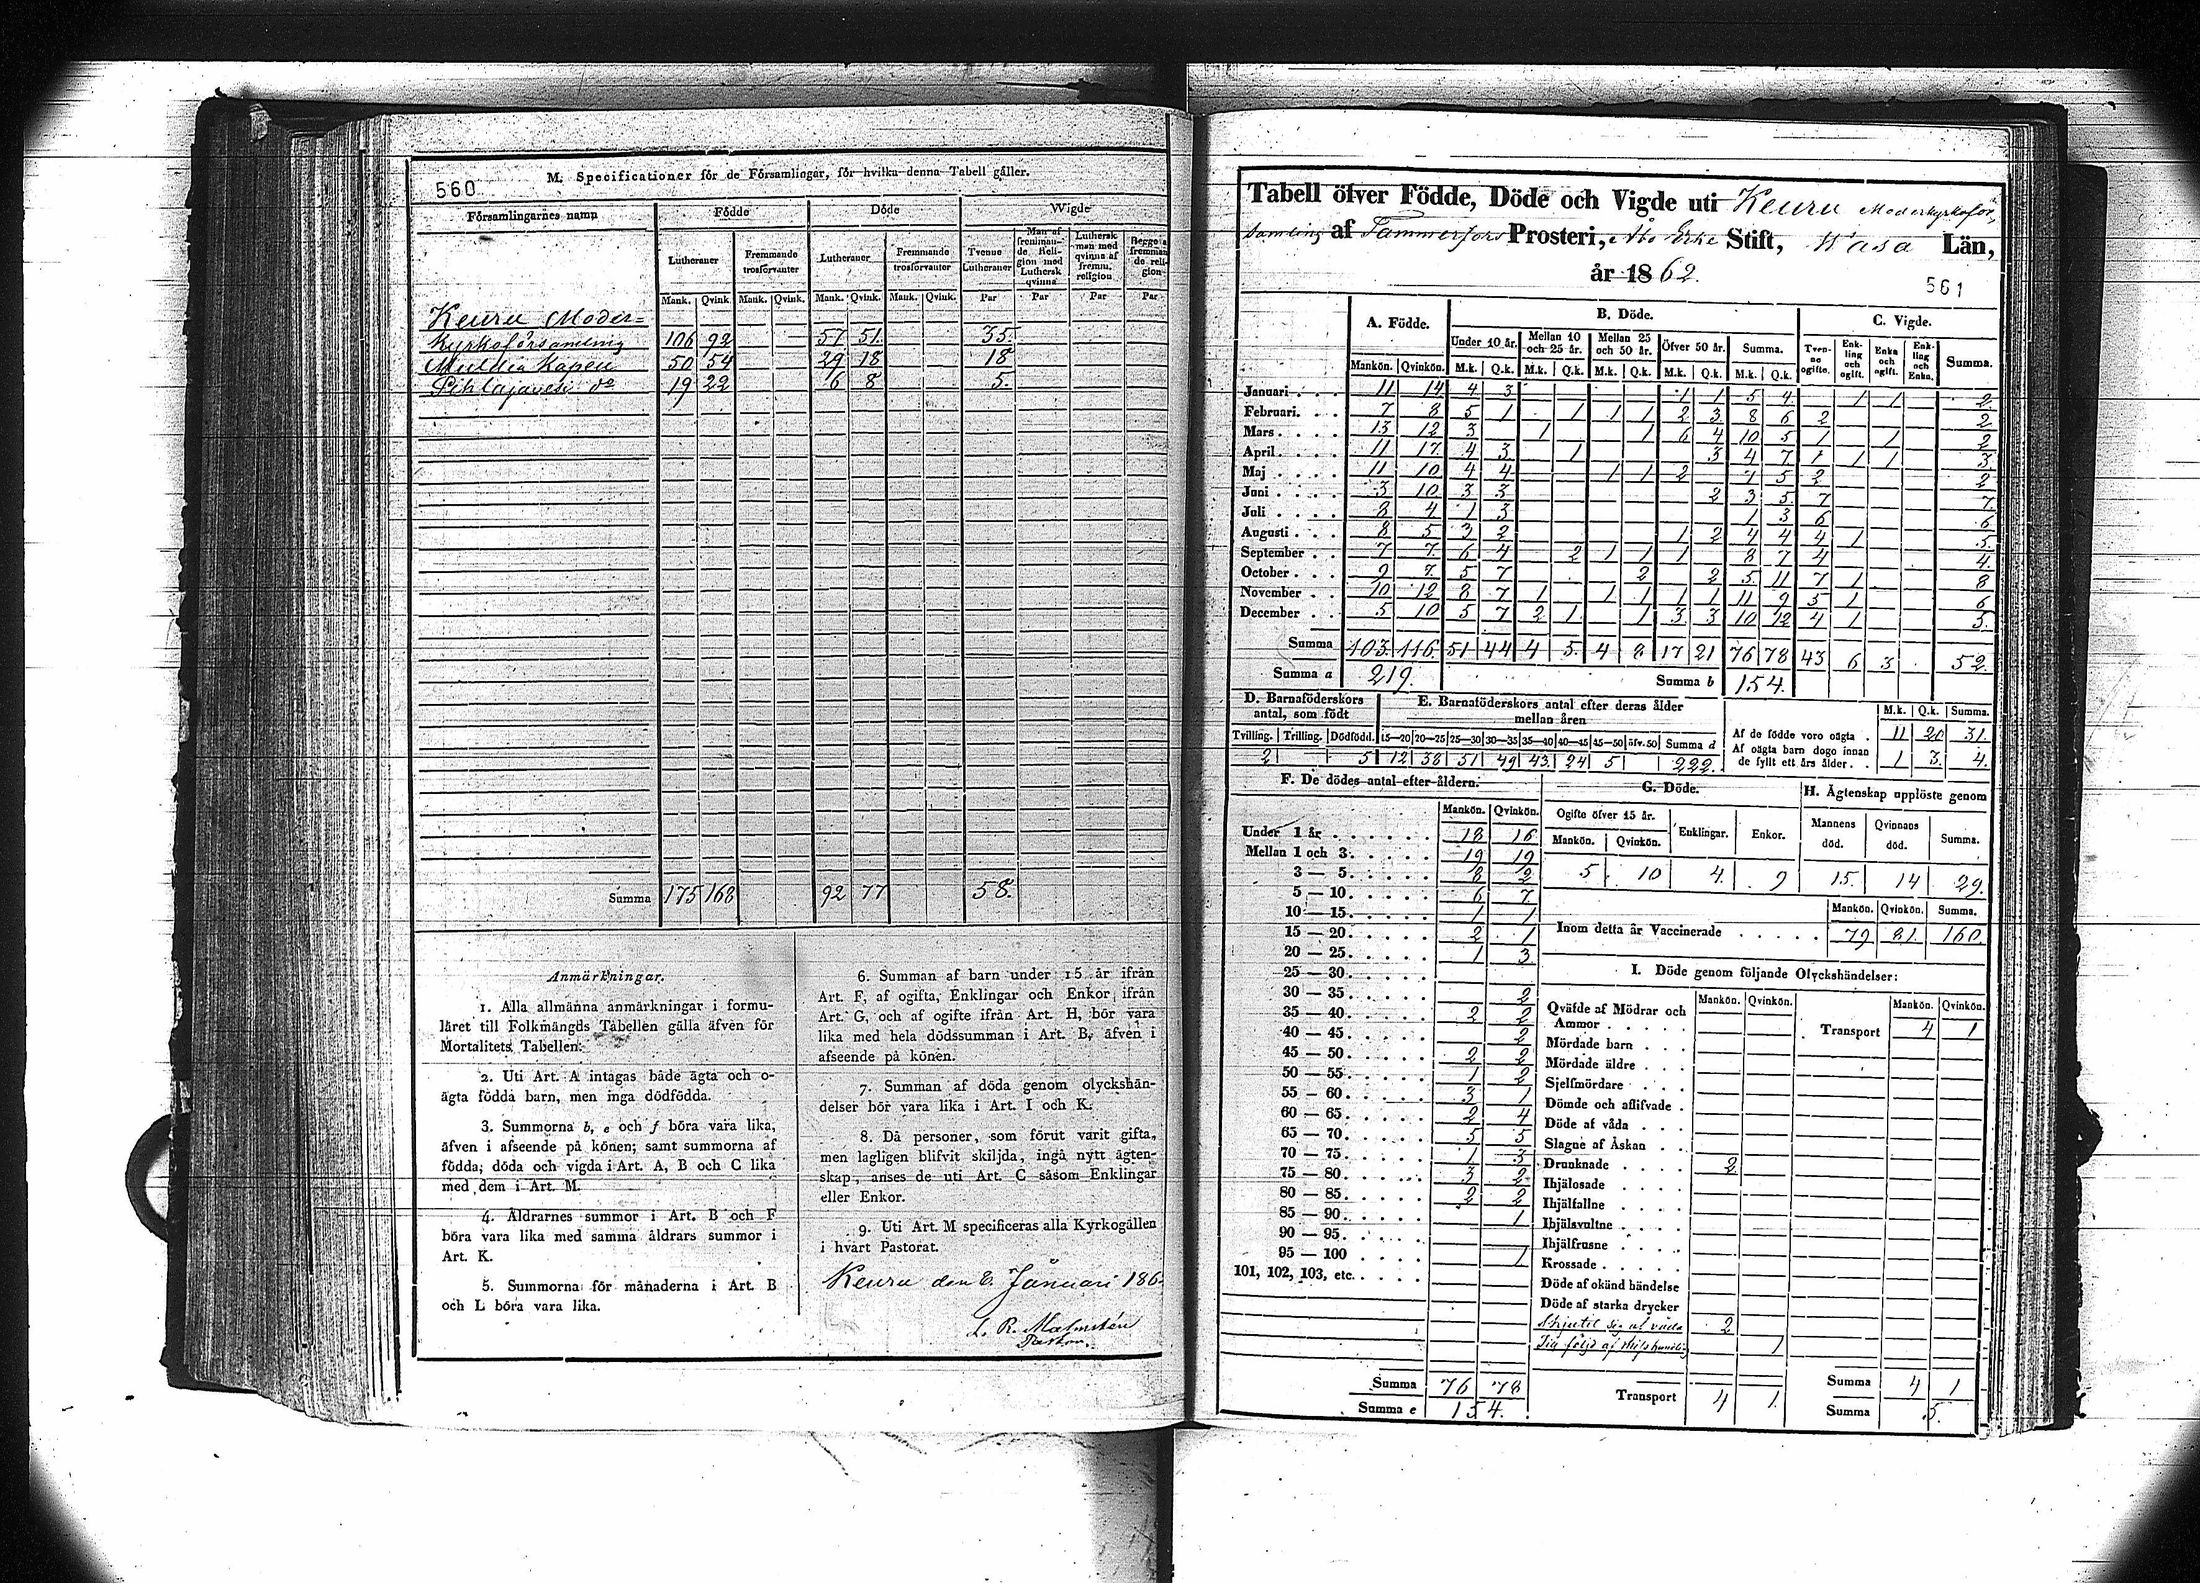 560
M. Specificationer för de Församlingar, för hvilka denna Tabell gäller.
Församlingarnes namn | Födde | Döde | Wigde
Lutheraner | Fremmande trosförvanter | Lutheraner | Fremmande trosförvanter | Tvenne Lutheraner | Man af fremmande Religion med Luthersk qvinna | Luthersk man med qvinna af fremm. religion | Begge af fremmande religion
Mank. | Qvink. | Mank. | Qvink. | Mank. | Qvink. | Mank. | Qvink. | Par | Par | Par | Par
Keuru Moder=
kyrkoförsamling 106 92 57 51 35.
Multia Kapell 50 54 29 18 18
Pihlajavesi do 19 22 6 8 5.
Summa 175 168 92 77 58.
Anmärkningar.
1. Alla allmänna anmärkningar i formu-
läret till Folkmängds Tabellen gälla äfven för
Mortalitets Tabellen.
2. Uti Art. A intagas både ägta och o-
ägta födda barn, men inga dödfödda.
3. Summorna b, e och f böra vara lika,
äfven i afseende på könen; samt summorna af
födda, döda och vigda i Art. A, B och C lika
med dem i Art. M.
4. Åldrarnes summor i Art. B och F
böra vara lika med samma åldrars summor i
Art. K.
5. Summorna för månaderna i Art. B
och L böra vara lika.
6. Summan af barn under 15 år ifrån
Art. F, af ogifta, Enklingar och Enkor ifrån
Art. G, och af ogifte ifrån Art. H, bör vara
lika med hela dödssumman i Art. B, äfven i
afseende på könen.
7. Summan af döda genom olyckshän-
delser bör vara lika i Art. I och K.
8. Då personer, som förut varit gifta,
men lagligen blifvit skiljda, ingå nytt ägten-
skap, anses de uti Art. C såsom Enklingar
eller Enkor.
9. Uti Art. M specificeras alla Kyrkogällen
i hvart Pastorat.
Keuru den 8. Januari 186
L. R. Malmstén
Pastor.
Tabell öfver Födde, Döde och Vigde uti Keuru Moderkyrkoför
samling af Tammerfors Prosteri, Åbo Erke Stift, Wasa Län,
år 1862.
561
A. Födde. | B. Döde. | C. Vigde.
Under 10 år. | Mellan 10 och 25 år. | Mellan 25 och 50 år. | Öfver 50 år. | Summa. | Tvenne ogifte. | Enkling och ogift. | Enka och ogift. | Enkling och Enka. | Summa.
Mankön. | Qvinkön. | M.k. | Q.k. | M.k. | Q.k. | M.k. | Q.k. | M.k. | Q.k. | M.k. | Q.k.
Januari 11 14 4 3 1 1 5 4 1 1 2
Februari 7 8 5 1 1 1 1 2 3 8 6 2 2
Mars 13 12 3 1 1 6 4 10 5 1 1 2
April 11 17 4 3 1 3 4 7 1 1 1 3
Maj 11 10 4 4 1 1 2 7 5 2 2
Juni 3 10 3 3 2 3 5 7 7
Juli 8 4 1 3 1 3 6 6
Augusti 8 5 3 2 1 2 4 4 4 1 5
September 7 7 6 4 2 1 1 1 8 7 4 4
October 9 7 5 7 2 2 5 11 7 1 8
November 10 12 8 7 1 1 1 1 1 11 9 5 1 6
December 5 10 5 7 2 1 1 3 3 10 12 4 1 5
Summa 103 116 51 44 4 5 4 8 17 21 76 78 43 6 3 52
Summa a 219. Summa b 154.
D. Barnaföderskors antal, som födt
Tvilling. | Trilling. | Dödfödd.
2 5
E. Barnaföderskors antal efter deras ålder mellan åren
15—20 | 20—25 | 25—30 | 30—35 | 35—40 | 40—45 | 45—50 | öfv. 50 | Summa d
12 38 51 49 43 24 5 222.
M.k. | Q.k. | Summa.
Af de födde voro oägta . 11 20 31.
Af oägta barn dogo innan
de fyllt ett års ålder . . 1 3 4.
F. De dödes antal efter åldern.
Mankön. | Qvinkön.
Under 1 år 18 16
Mellan 1 och 3 19 19
3 — 5 8 2
5 — 10 6 7
10 — 15 1 1
15 — 20 2 1
20 — 25 1 3
25 — 30
30 — 35 2
35 — 40 2 2
40 — 45 2
45 — 50 2 2
50 — 55 1 2
55 — 60 3 1
60 — 65 2 4
65 — 70 5 5
70 — 75 1 3
75 — 80 3 2
80 — 85 2 2
85 — 90 1
90 — 95
95 — 100 1
101, 102, 103, etc.
Summa 76 78
Summa e 154.
G. Döde.
Ogifte öfver 15 år. | Enklingar. | Enkor.
Mankön. | Qvinkön.
5 10 4 9
H. Ägtenskap upplöste genom
Mannens död. | Qvinnans död. | Summa.
15 14 29
Mankön. | Qvinkön. | Summa.
Inom detta år Vaccinerade 79 81 160
I. Döde genom följande Olyckshändelser:
Mankön. | Qvinkön. | Mankön. | Qvinkön.
Qväfde af Mödrar och
Ammor
Mördade barn
Mördade äldre
Sjelfmördare
Dömde och aflifvade
Döde af våda
Slagne af Åskan
Drunknade 2
Ihjälosade
Ihjälfallne
Ihjälsvultne
Ihjälfrusne
Krossade
Döde af okänd händelse
Döde af starka drycker
Skjutit sig af våda 2
Till följd af misshandling 1
Transport 4 1
Transport 4 1
Summa 4 1
Summa 5.